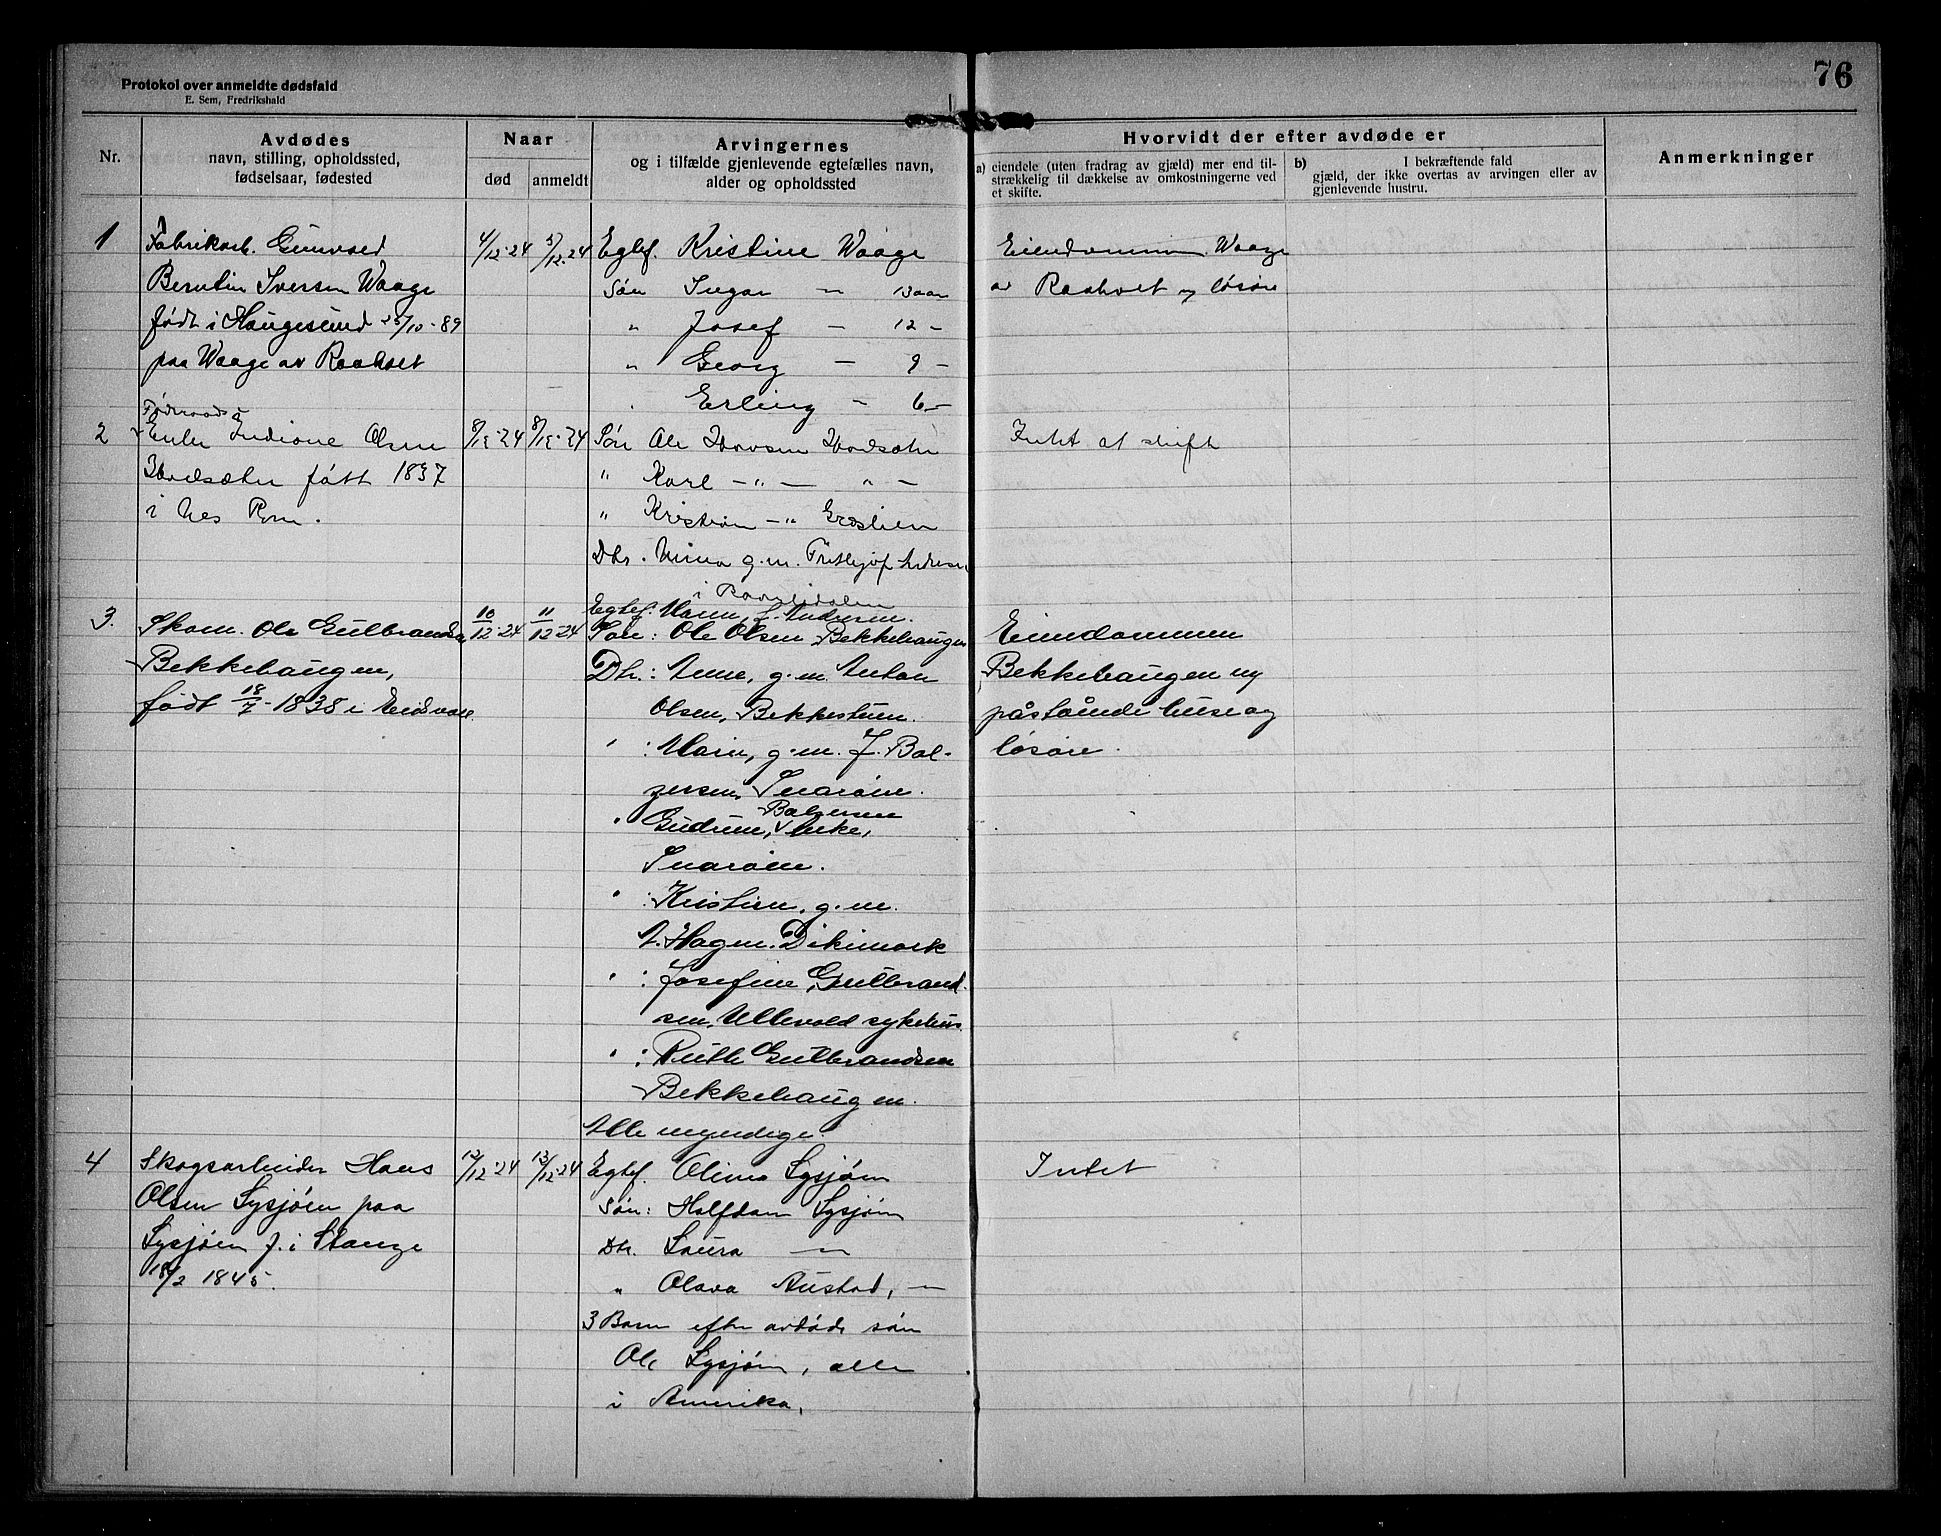 76
Protokol over anmeldte dødsfald
E. Sem, Fredrikshald
Nr.
Avdødes
navn, stilling, opholdssted,
fødselsaar, fødested
Naar
død
anmeldt
Arvingernes
og i tilfælde gjenlevende egtefælles navn,
alder og opholdssted
Hvorvidt der efter avdøde er
a) eiendele (uten fradrag av gjæld) mer end til-
strækkelig til dækkelse av omkostningerne ved
et skifte.
b) I bekræftende fald
gjæld, der ikke overtas av arvingen eller av
gjenlevende hustru.
Anmerkninger
1
Fabrikarb.
Berntin Iversen Waage
født i Haugesund 25/10-89
paa Waage av Raaholt
4/12-24
5/12-24
Egtef. Kristine Waage
Søn Ingar — 13 aar
" Josef — 12 —
" Georg — 9 —
" Erling — 6 —
Waage
av Raaholt og løsøre
2
Føderaads
Enke Indiane Olsen
født 1837
i Nes Rom.
8/12-24
8/12-24
Søn Ole
" Karl — " — " —
" Kristian — "
Dtr. g.m. Frithjof
i
Intet at skifte
3.
Skom. Ole Gulbrandsen
Bekkehaugen,
født 18/7-1838 i Eidsvoll
10/12-24
11/12-24
Egtef. Maren L. Andersen.
Søn: Ole Olsen Bekkehaugen
Dtr.: Anne, g.m. Anton
Olsen, Bekkestuen.
" : Marie, g.m. J. Bal-
zersen, Snarøen.
Balzersen
" Gudrun, enke,
Snarøen.
" : Kristine, g.m.
A. Hagen. Dikemark
" : Josefine Gulbrand-
sen, Ullevold sykehus.
" : Ruth Gulbrandsen
Bekkehaugen.
Alle myndige.
Eiendommen
Bekkehaugen og
påstående huse og
løsøre.
4
Skogsarbeider Hans
Olsen Sysjøen paa
Sysjøen f. i Stange
18/2 1845.
13/12-24
Egtef. Oline Sysjøen
Søn: Halfdan Sysjøen
Dtr. Laura —"—
" Olava Austad, —"—
3 Barn efter avdøde søn
Ole Sysjøen, alle
i Amerika.
Intet